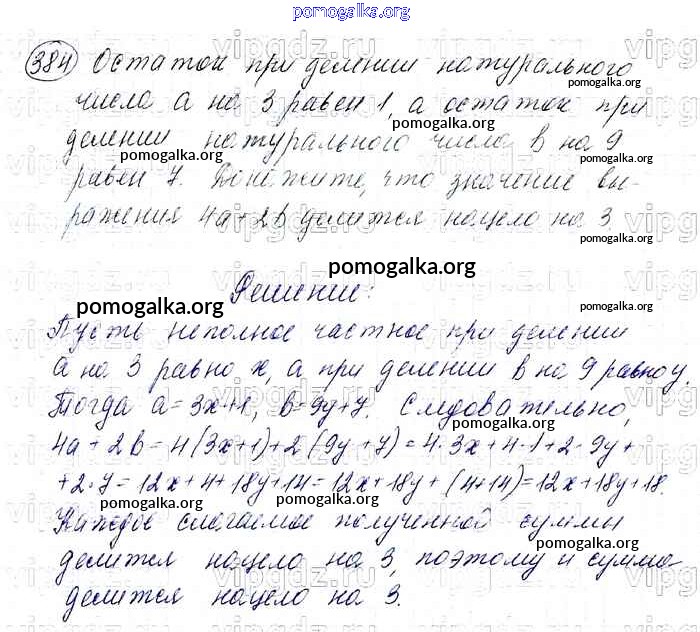 pomogalka.org
384 Остаток при делении натурального
числа a на 3 равен 1, а остаток при
pomogalka.org
делении натурального числа b на 9
pomogalka.org
pomogalka.org
равен 7. Докажите, что значение вы-
ражения 4a+2b делится нацело на 3.
pomogalka.org
pomogalka.org
Решение:
pomogalka.org
Пусть неполное частное при делении
pomogalka.org
a на 3 равно x, а при делении b на 9 равно y.
Тогда a=3x+1, b=9y+7. Следовательно,
pomogalka.org
4a+2b=4(3x+1)+2(9y+7)=4·3x+4·1+2·9y+
+2·7=12x+4+18y+14=12x+18y+(4+14)=12x+18y+18.
pomogalka.org
pomogalka.org
Каждое слагаемое полученной суммы
pomogalka.org
делится нацело на 3, поэтому и сумма
делится нацело на 3.
pomogalka.org